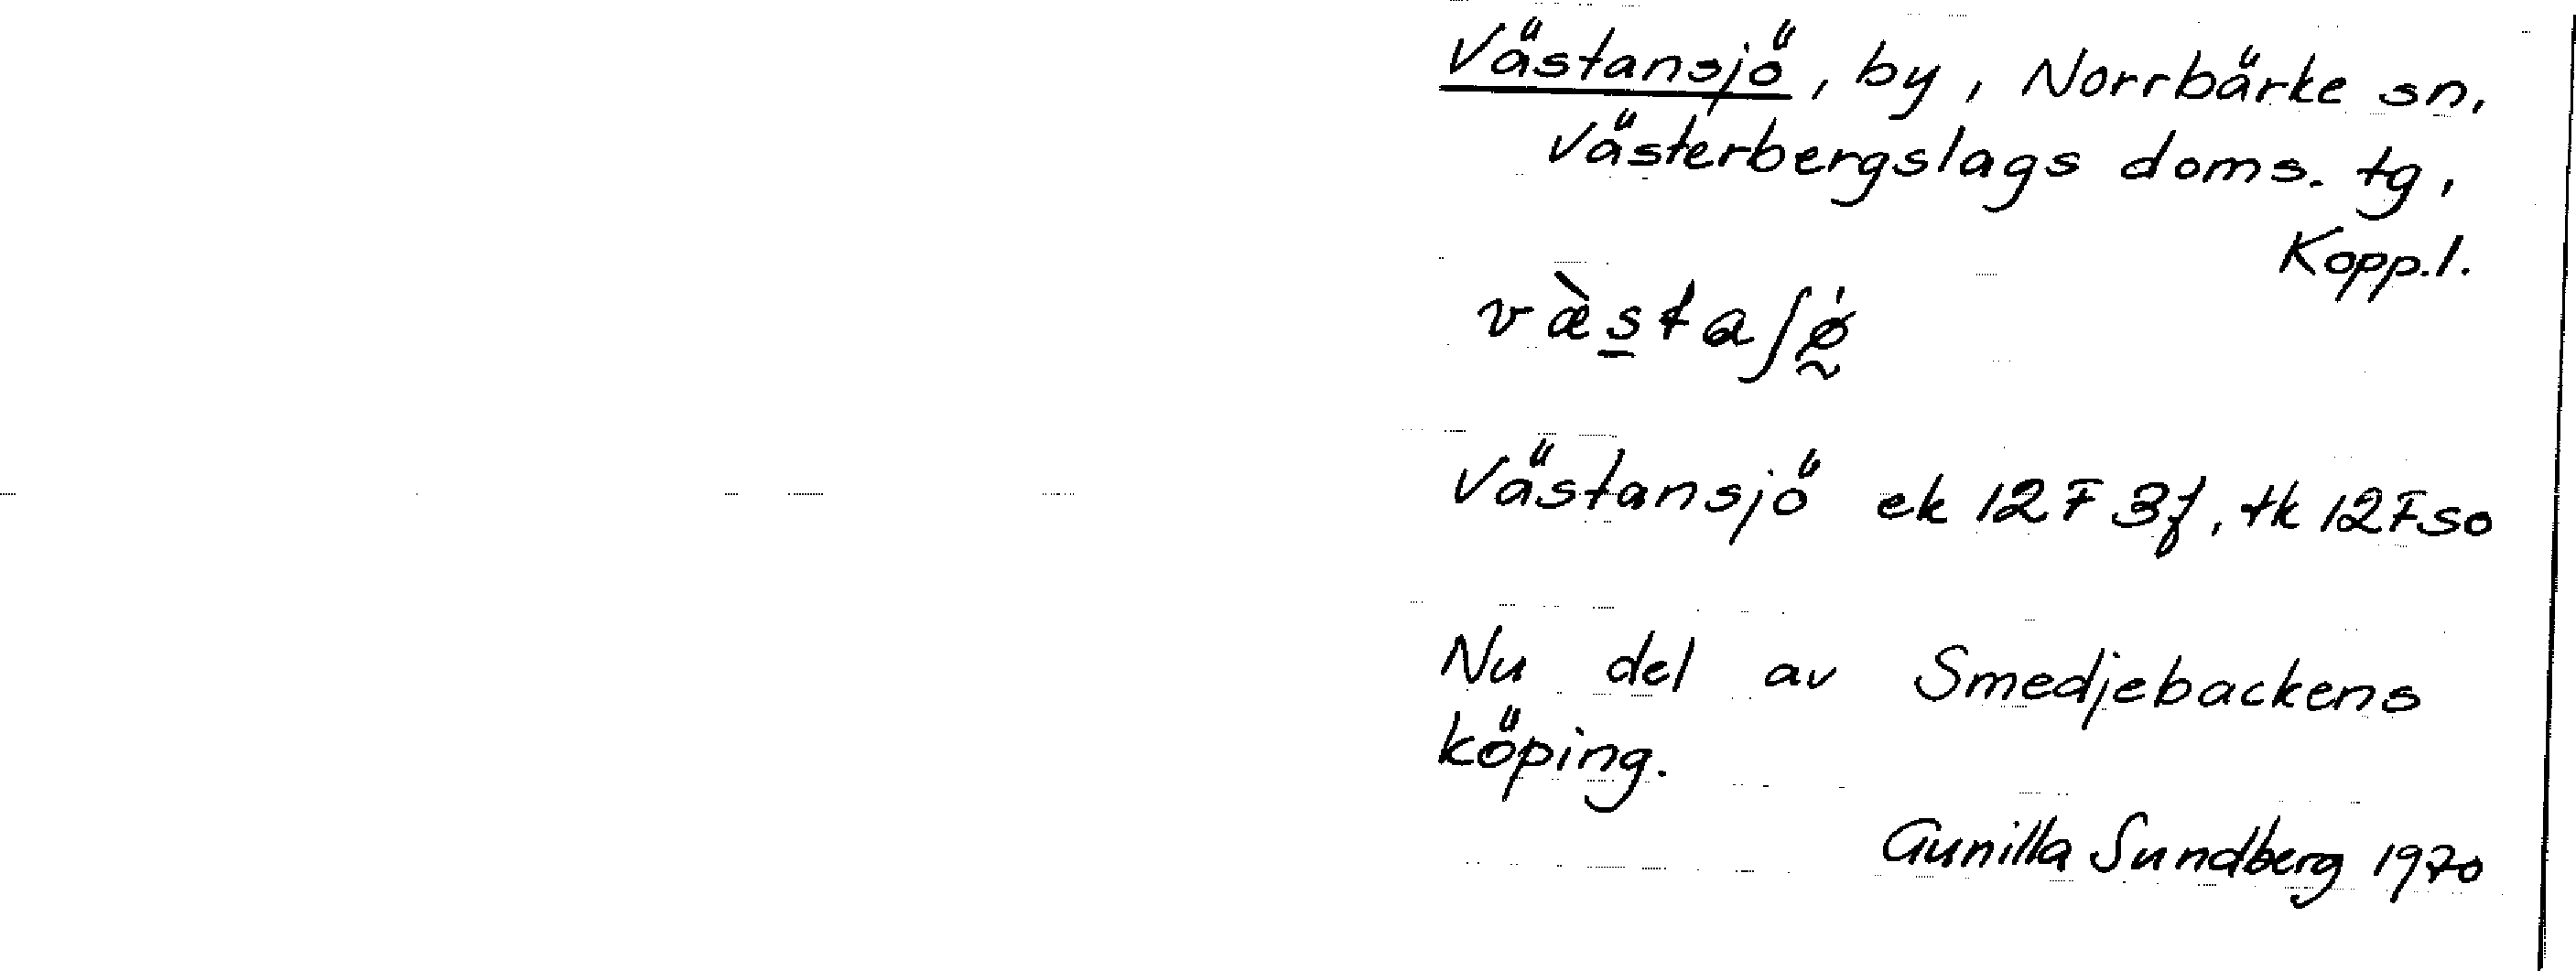 Västansjö, by, Norrbärke sn,
Västerbergslags doms. tg,
Kopp.l.
væ̀s̲taʃǿ̰
Västansjö ek 12F 3f, tk 12Fso
Nu del av Smedjebackens
köping.
Gunilla Sundberg 1970